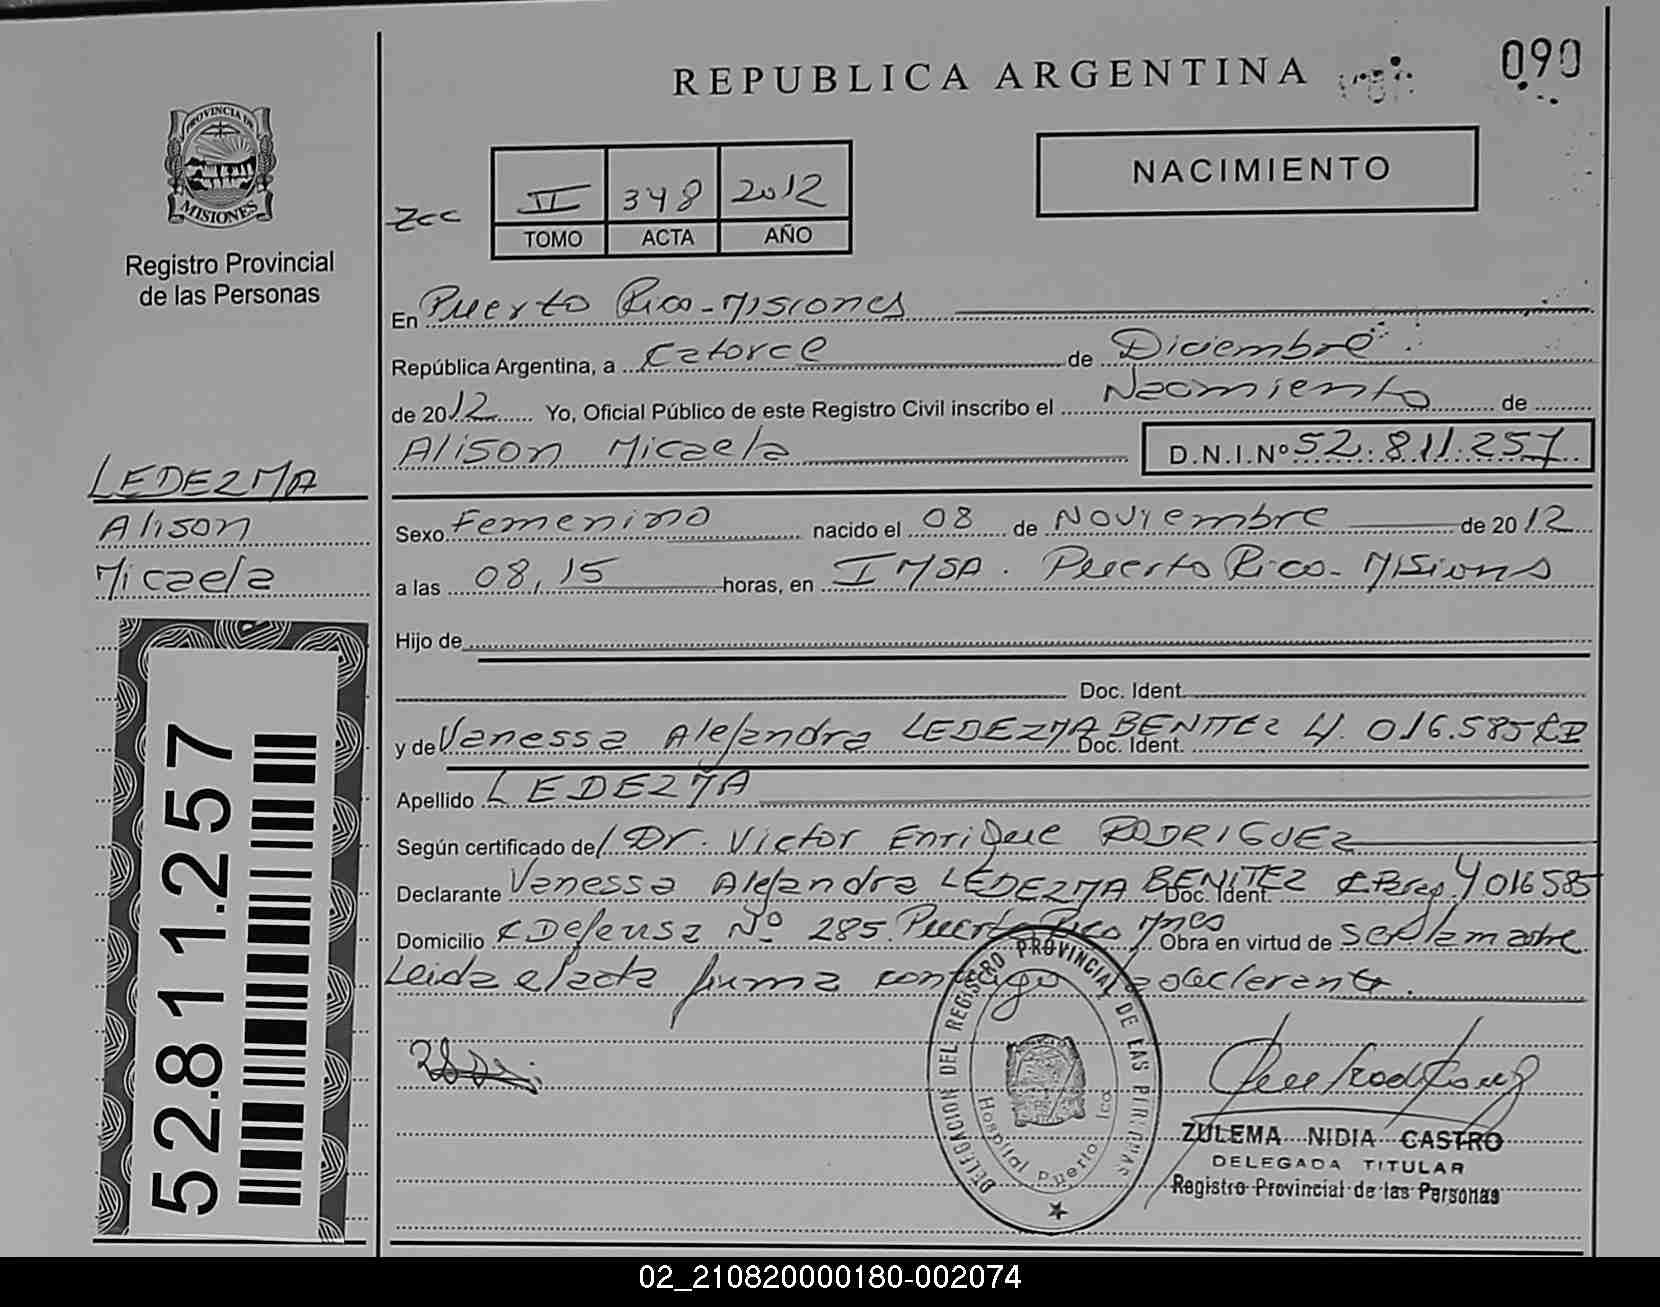 REPUBLICA ARGENTINA
090
PROVINCIA DE
MISIONES
Registro Provincial
de las Personas
NACIMIENTO
II 348 2012
TOMO ACTA AÑO
En Puerto Rico - Misiones
República Argentina, a Catorce de Diciembre
de 2012 Yo, Oficial Público de este Registro Civil inscribo el Nacimiento de
Alison Micaela D.N.I.Nº 52.811.257
LEDEZMA
Alison
Micaela
Sexo Femenino nacido el 08 de Noviembre de 2012
a las 08,15 horas, en IMSA. Puerto Rico - Misions
Hijo de
Doc. Ident.
y de Vanessa Alejandra LEDEZMA BENITEZ Doc. Ident. 4.016.585
Apellido LEDEZMA
Según certificado de Dr. Victor Enrique RODRIGUEZ
Declarante Vanessa Alejandra LEDEZMA BENITEZ Doc. Ident. 4016585
Domicilio Defensa Nº 285. Puerto Rico Mnes Obra en virtud de ser la madre
Leida el acta firma conmigo la declarante.
52.811.257
DELEGACION DEL REGISTRO PROVINCIAL DE LAS PERSONAS
Hospital Puerto Rico
ZULEMA NIDIA CASTRO
DELEGADA TITULAR
Registro Provincial de las Personas
02_210820000180-002074